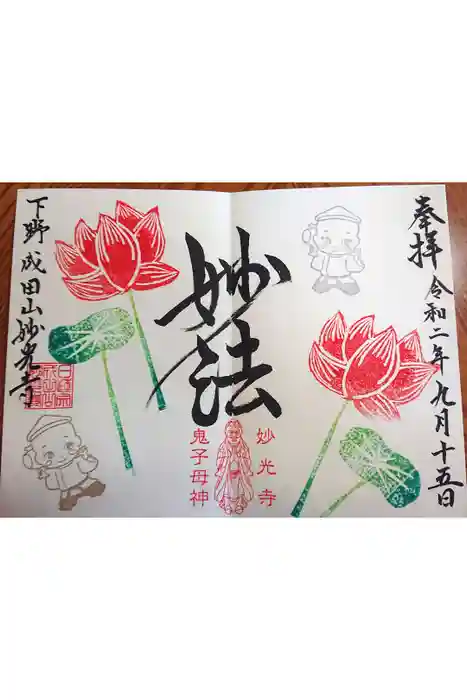 奉拝
令和二年九月十五日
妙法
妙光寺
鬼子母神
下野成田山妙光寺